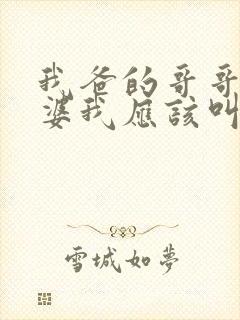 我爸的哥哥
婆我应该叫
雪城如夢